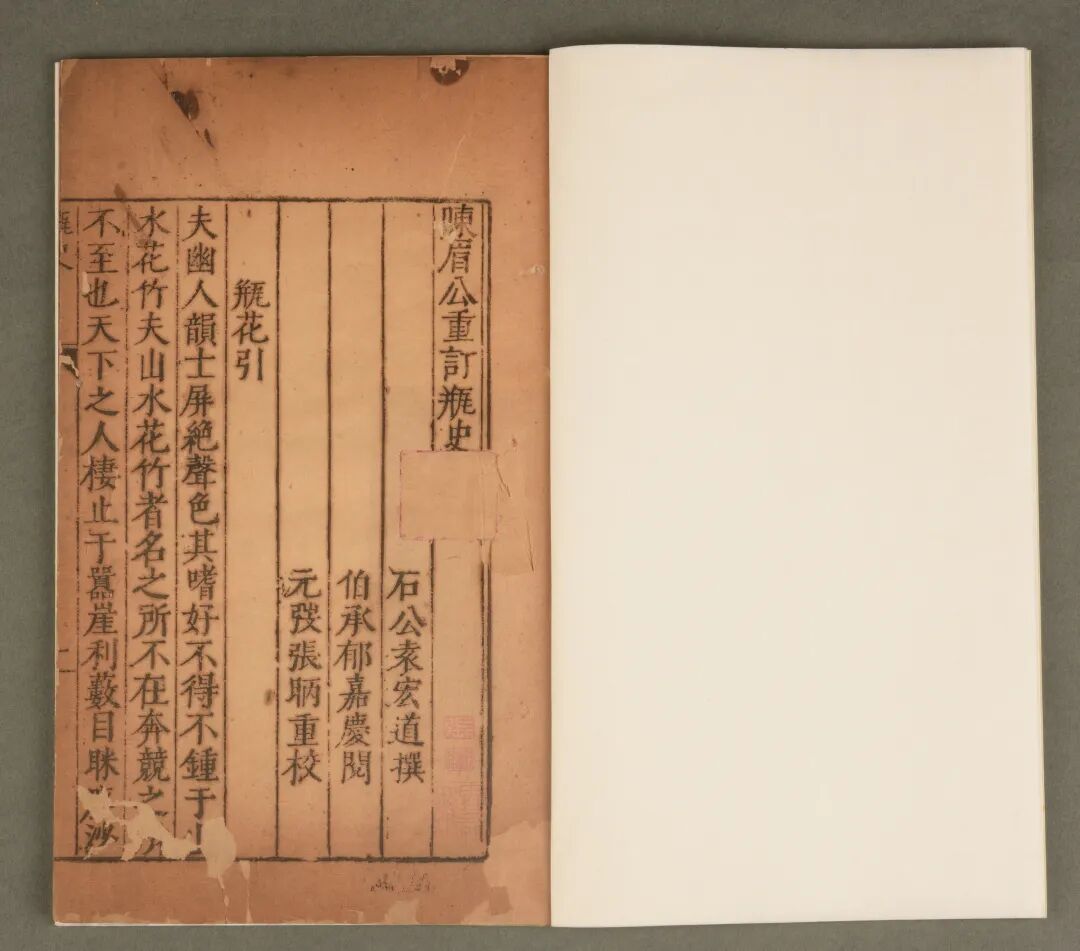 陳眉公重訂瓶史
石公袁宏道撰
伯承郁嘉慶閱
元弢張昞重校
瓶花引
夫幽人韻士屏絶聲色其嗜好不得不鍾于山
水花竹夫山水花竹者名之所不在奔競之
不至也天下之人棲止于囂崖利藪目眯沙